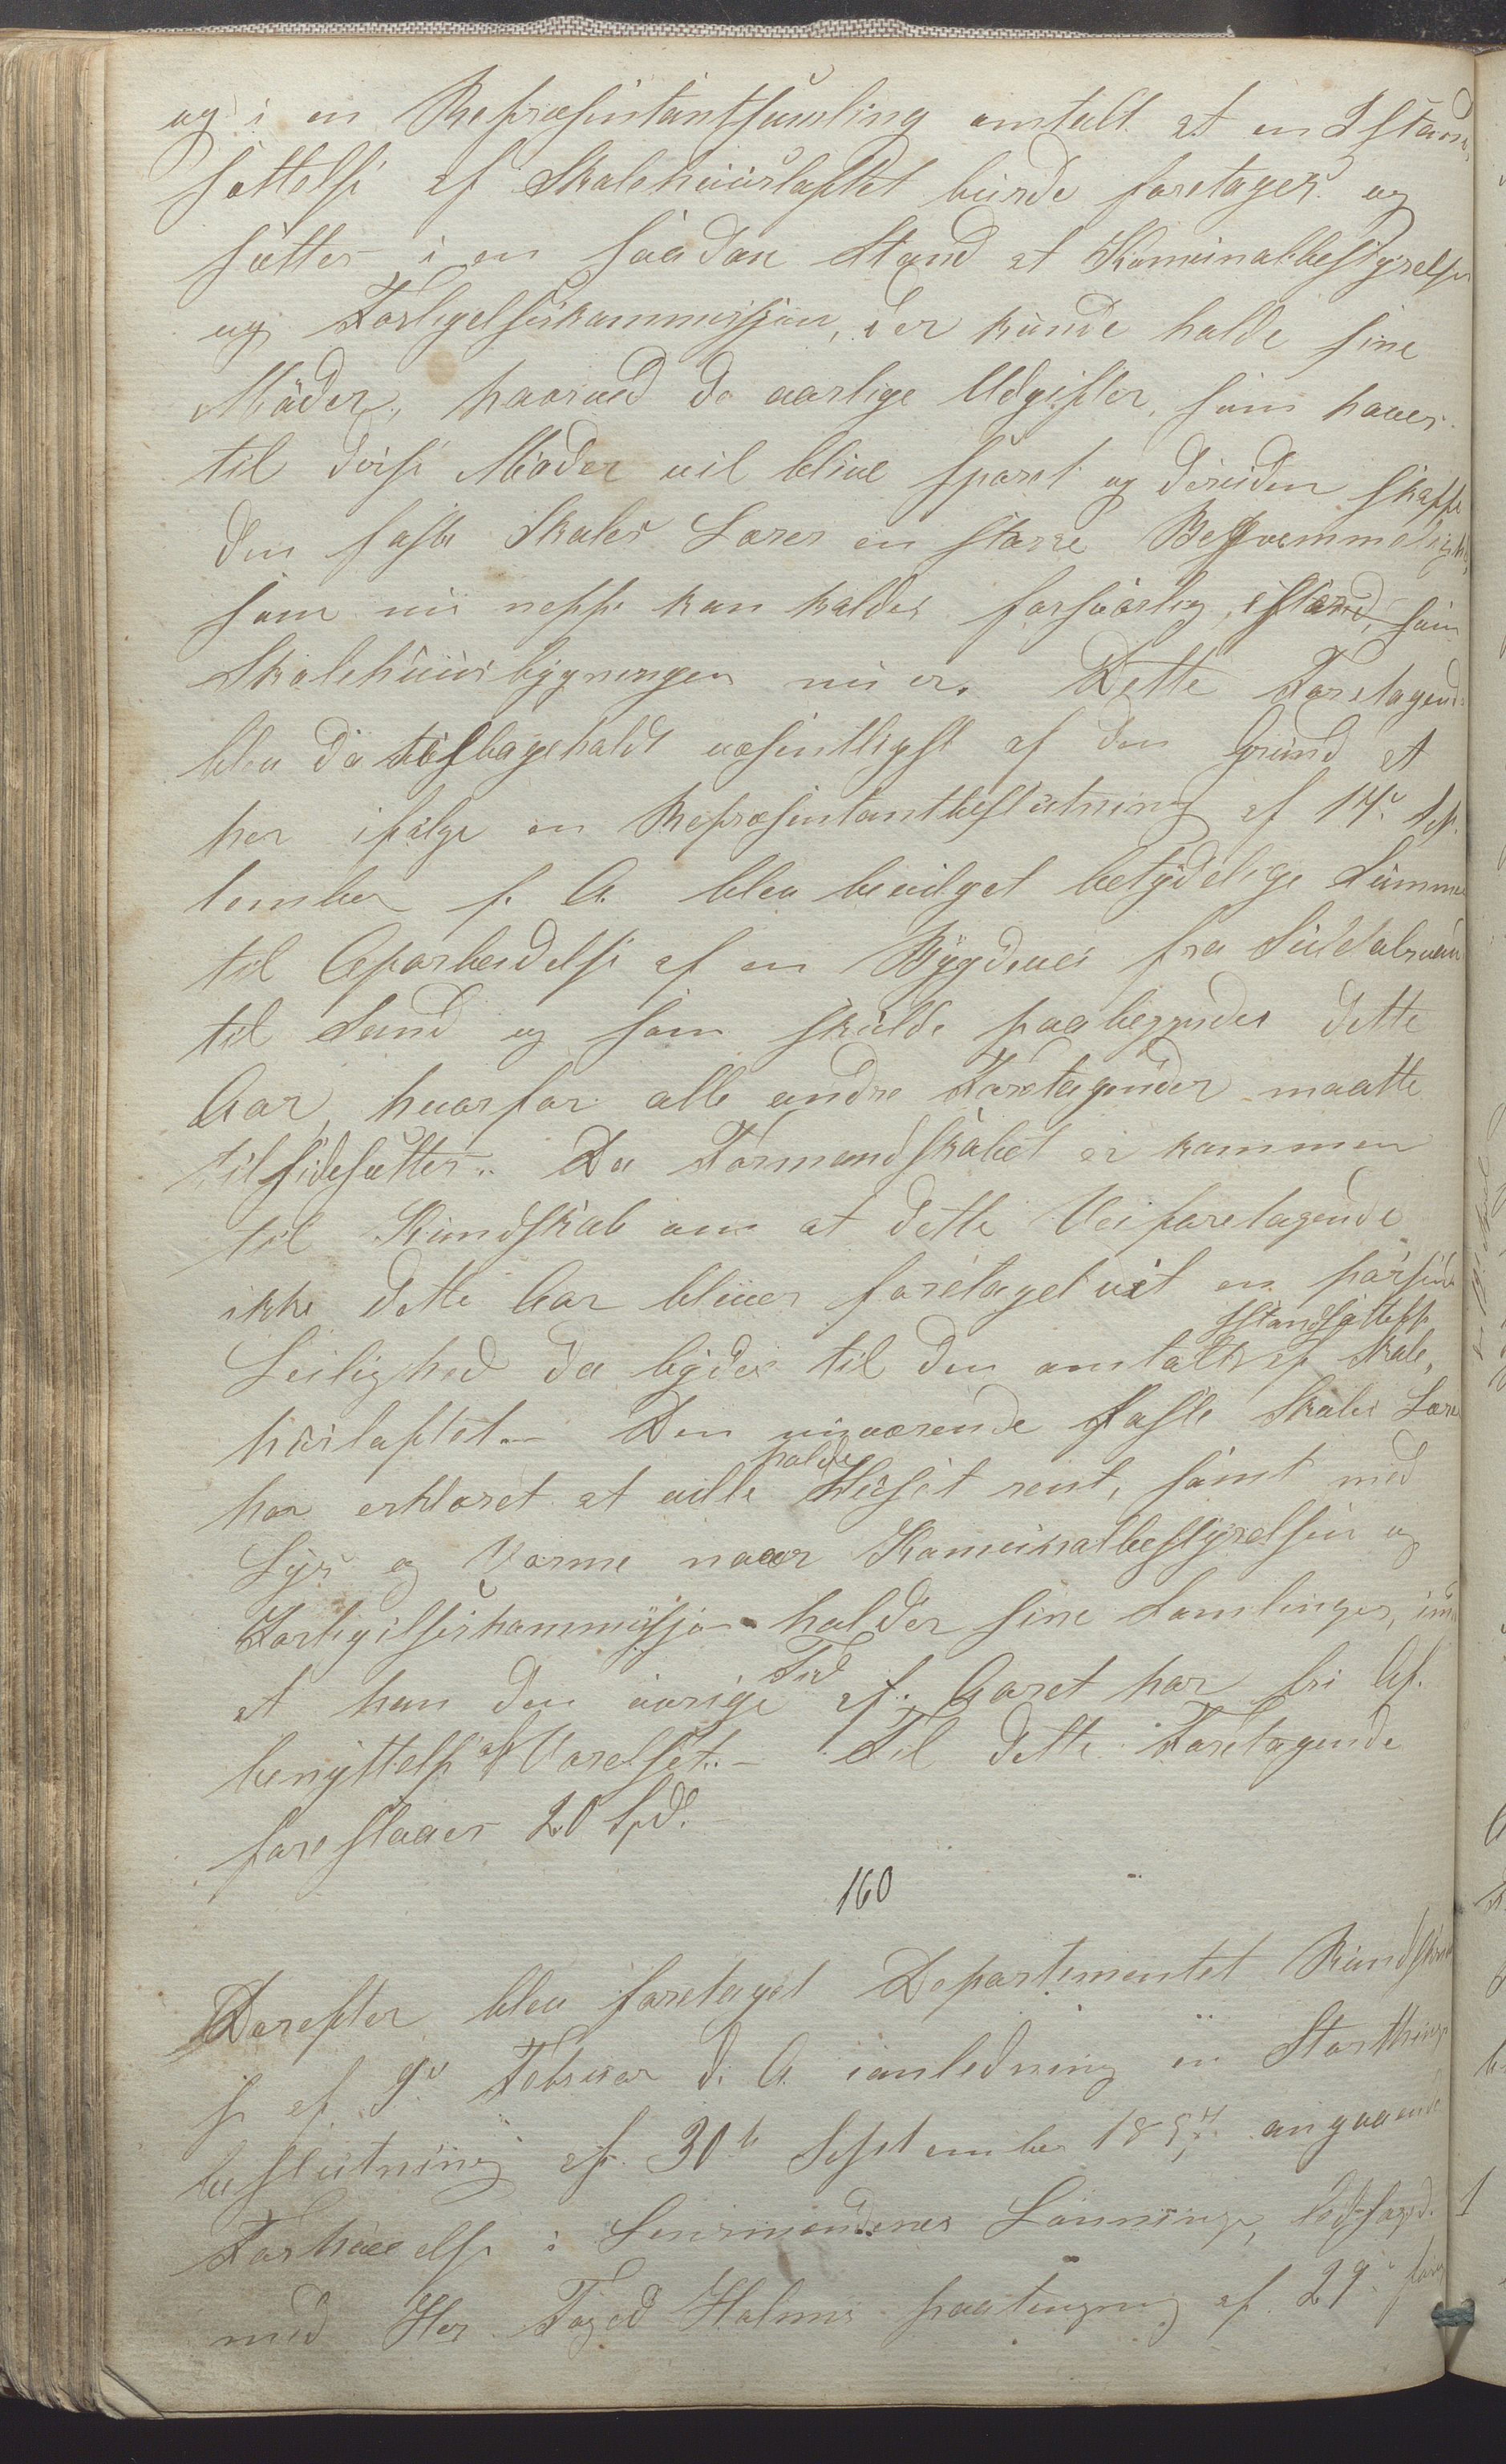 og i en Repræsentantsamling omtalt at en Istand,
sættelse af Skolehuusloftet burde foretages og
sættes i en saadan Stand at Komunalbestyrelsen
og Forligelseskommissjon, der kunde holde sine
Møder, hvorved de aarlige Udgifter, som haves
til disse Møder vil blive sparet og desuden skaffe
den faste Skoles Lærer en større Beqvemmelighed,
som nu neppe kan kaldes forsvarlig, istand, som
Skolehuusbygningen nu er. Dette Foretagende
blev da tilbageholdt væsentligst af den Grund at
her ifølge en Repræsentantbeslutning af 14de Sep-
tember f. A. blev bevilget betydelige Summer
til Oparbeidelse af en Bygdevei fra Suldalsvand
til Sand og som skulde paabegyndes dette
Aar, hvorfor alle andre Foretagender maatte
tilsidesættes. Da Formandskabet er kommen
til Kundskab om at dette Veiforetagende
ikke dette Aar bliver foretaget vil en passende
Leilighed da bydes til den omtalte Istandsættelse af Skole,
huusloftet. – Den nuværende faste Skoles Lærer
har erklæret at ville holde Huset rent, samt med
Lys og Varme naar Komunalbestyrelsen og
Forligelseskommissjon holder sine Samlinger, imod
at han den øvrige Tid af Aaret har fri Af-
benyttelse af Værelset. – Til dette Foretagende
foreslaaes 20 Spd.
160
Derefter blev foretaget Departementet Rundskrivel
se af 9de Februar d. A. ianledning en Storthings
beslutning af 30te September 1854 angaaende
Forhøielse i Lensmændenes Lønninger, ledsaged
med Her Foged Holms paategning af 29de